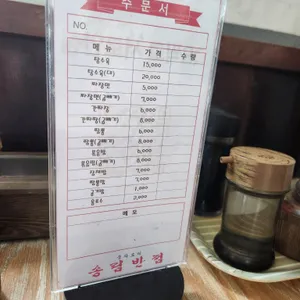 주문서
NO.
메뉴 가격 수량
탕수육 15,000
탕수육(대) 20,000
짜장면 5,000
짜장면(곱빼기) 7,000
간짜장 6,000
간짜장(곱빼기) 8,000
짬뽕 6,000
짬뽕(곱빼기) 8,000
볶음밥 6,000
볶음밥(곱빼기) 8,000
잡채밥 7,000
짬뽕밥 7,000
공기밥 1,000
음료수 2,000
메모
송탐반점